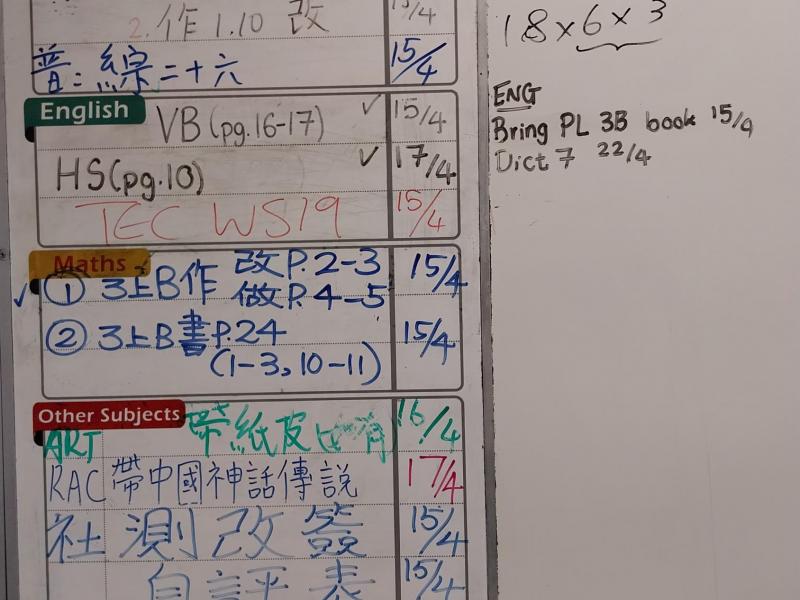 2. 作 1.10 改 15/4
普: 綜二十六 15/4
English
VB (pg.16-17) ✓ 15/4
HS (pg.10) ✓ 17/4
TEC WS19 15/4
Maths
✓ ① 3上B作 改P.2-3 15/4
做P.4-5
② 3上B書P.24 15/4
(1-3, 10-11)
Other Subjects
ART 帶紙皮 16/4
RAC 帶中國神話傳說 17/4
社 測改簽 15/4
自評表 15/4
18 × 6 × 3
ENG
Bring PL 3B book 15/4
Dict 7 22/4